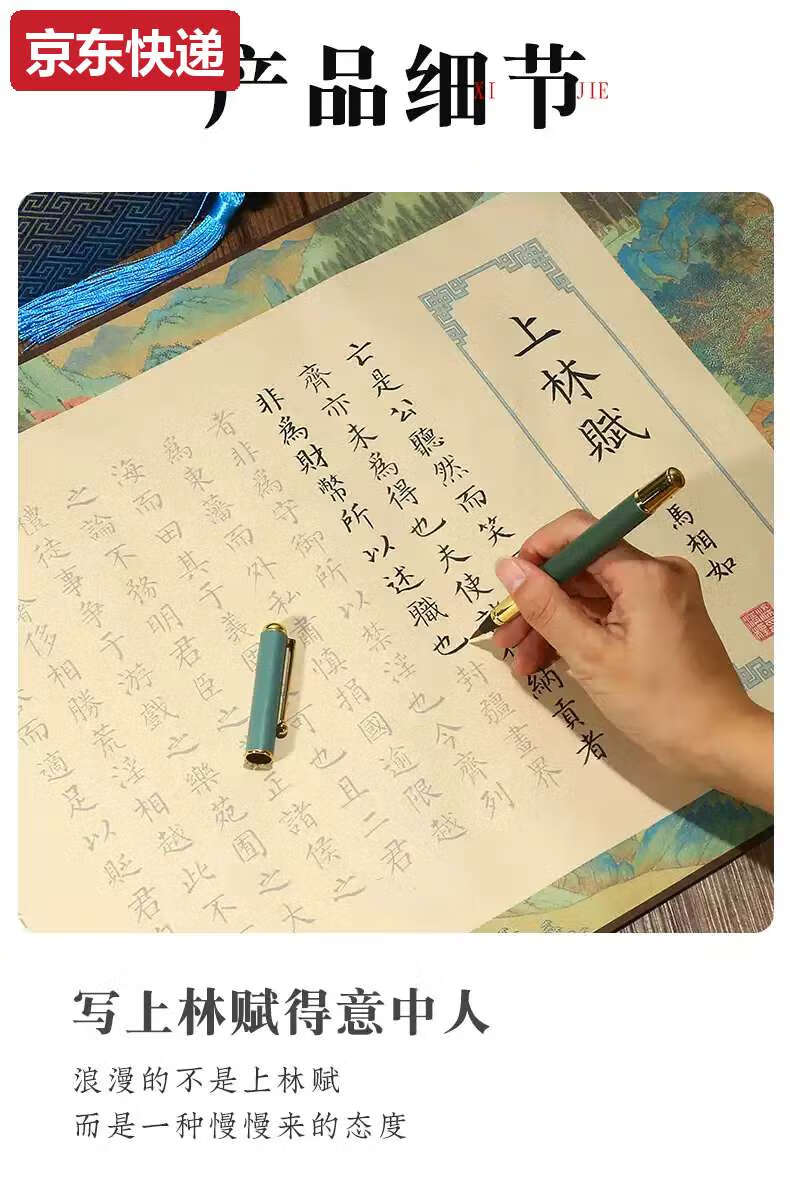 京东快递
产品细节
XI JIE
上林賦
馬相如
亡是公聽然而笑
齊亦未為得也夫使納貢者
非為財幣所以述職也封疆畫界
者非為守御所以禁淫也今齊列
為東藩而外私肅慎捐國逾限越
海而田其于義可也且二君
之論不務明君臣之正諸侯之
禮徒事爭于游戲之樂苑囿之大
侈相勝荒淫相越此不
而適足以貶君
写上林赋得意中人
浪漫的不是上林赋
而是一种慢慢来的态度